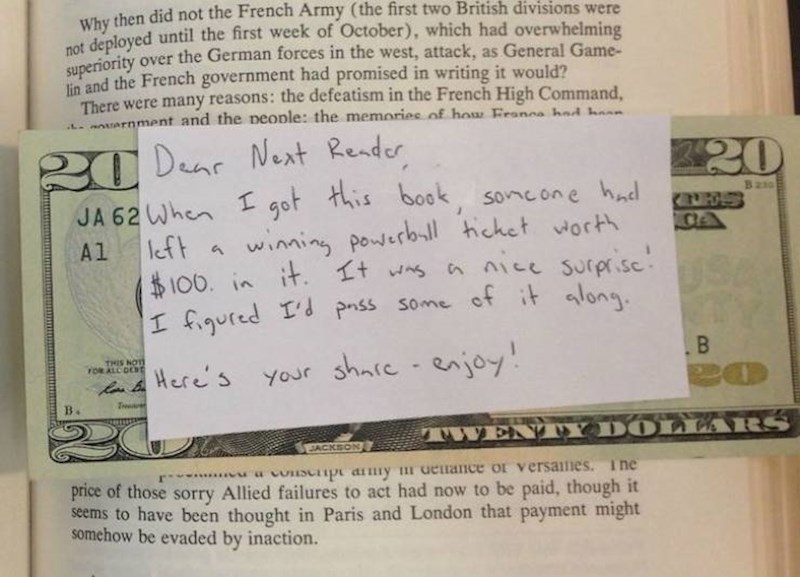 Why then did not the French Army (the first two British divisions were
not deployed until the first week of October), which had overwhelming
superiority over the German forces in the west, attack, as General Game-
lin and the French government had promised in writing it would?
There were many reasons: the defeatism in the French High Command,
government and the people: the memories of how France had been
20
20
JA 62
B 230
A1
Dear Next Reader,
When I got this book, someone had
left a winning powerball ticket worth
$100. in it. It was a nice surprise!
I figured I'd pass some of it along.
Here's your share - enjoy!
THIS NOT
FOR ALL DEBT
B
20
B
20
JACKSON
TWENTY DOLLARS
a conscript army in defiance of Versailles. The
price of those sorry Allied failures to act had now to be paid, though it
seems to have been thought in Paris and London that payment might
somehow be evaded by inaction.